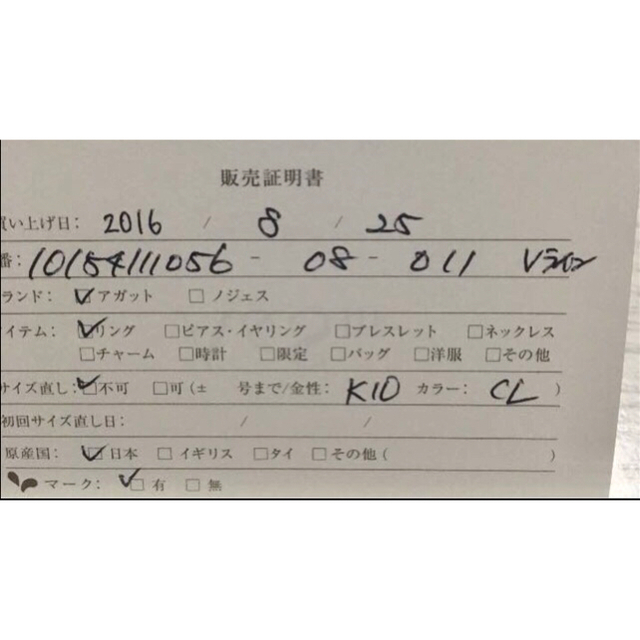 販売証明書
買い上げ日: 2016 / 8 / 25
番: 10154111056 - 08 - 011 Vライン
ランド: ☑アガット □ノジェス
イテム: ☑リング □ピアス・イヤリング □ブレスレット □ネックレス
□チャーム □時計 □限定 □バッグ □洋服 □その他
サイズ直し: ☑不可 □可(± 号まで/金性: K10 カラー: CL )
初回サイズ直し日: / /
原産国: ☑日本 □イギリス □タイ □その他( )
マーク: ☑有 □無